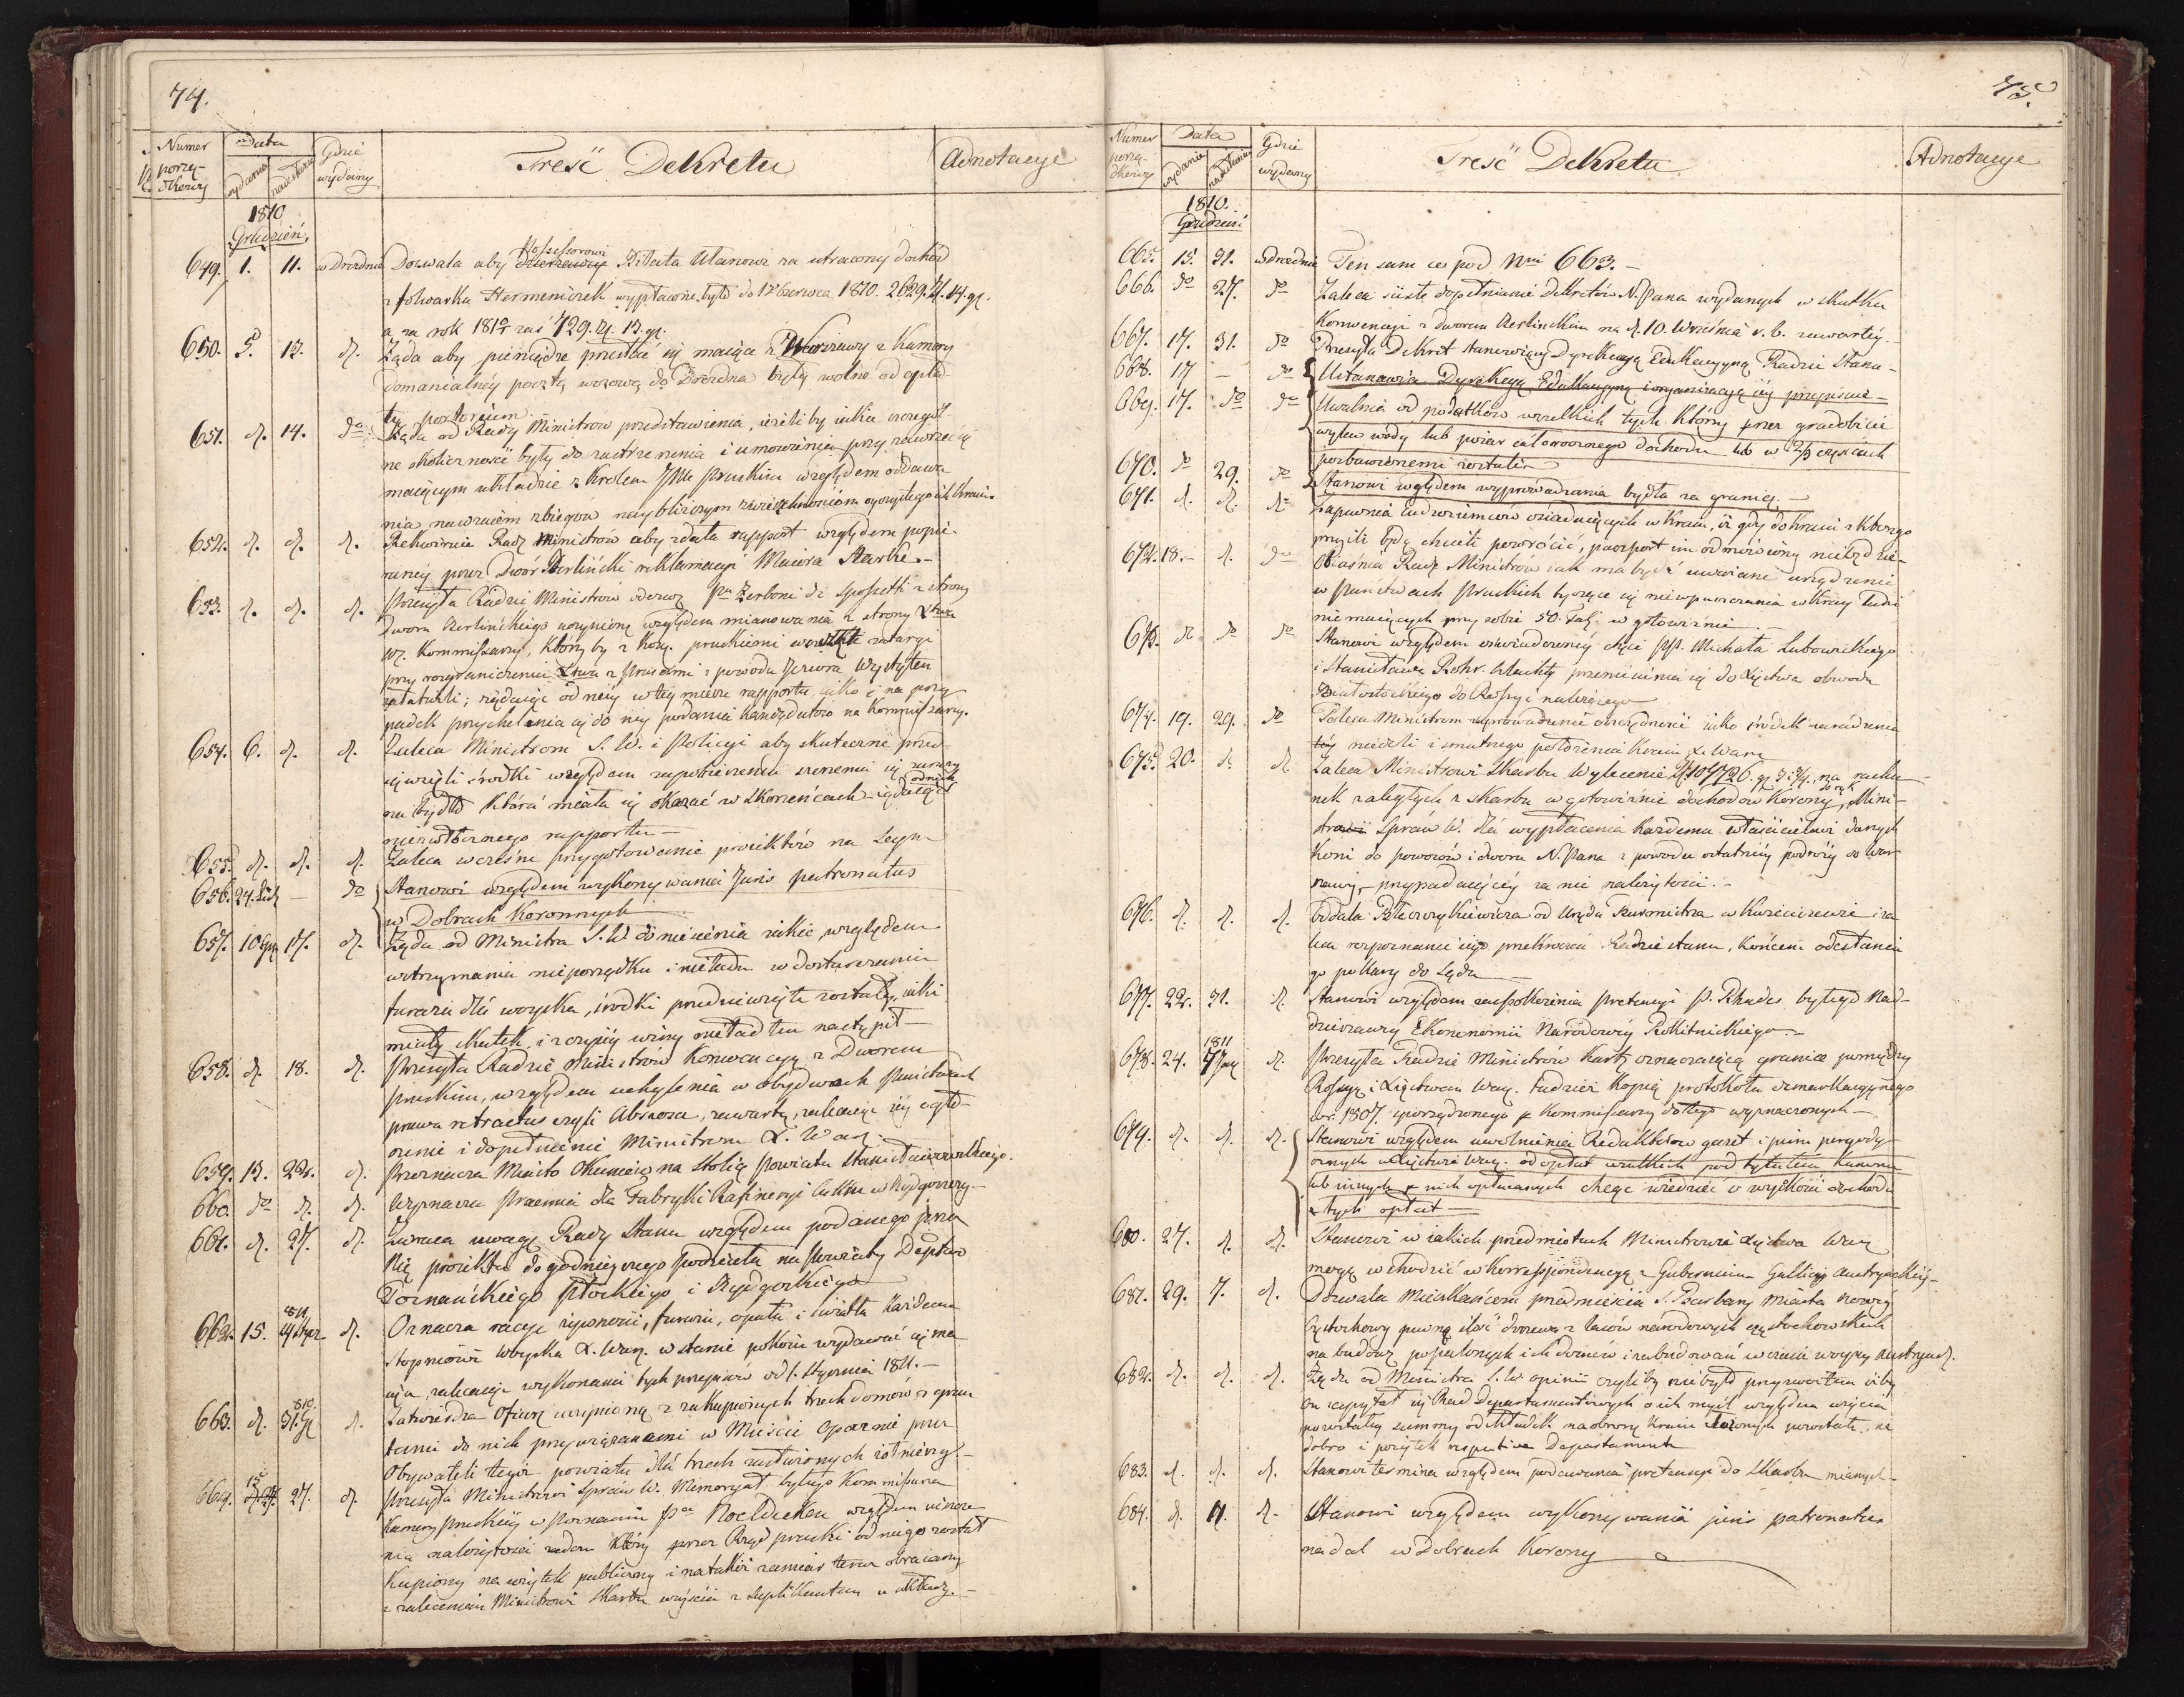 74.
Numer porządkowy
Data
wydania
nadesłania
Gdzie wydany
Treść Dekretu
Adnotacye
1810
Grudzień.
649. 1. 11. w Dreznie Dozwala aby Possessorowi Ulanowi za utracony dochód
z folwarku wypłacone było do 1 Czerwca 1810. 2629. zł. 14. gr.
a za rok 181 zaś 729. zł. 13. gr.
650. 5. 13. d. Żąda aby pieniądze przesłać się maiące z Warszawy z Kamery
Domanialnéy pocztą wozową do Drezdna były wolne od opła-
ty portoryum.
651. d. 14. do Żąda od Rady Ministrów przedstawienia, ieżeli by iakie szczegól-
ne okoliczności były do zastrzeżenia i umowienia przy zawrzeć się
maiącym układzie z Krolem JMci Pruskim względem oddawa-
nia nawzaiem zbiegów
652. d. d. d. Rekwiruie Radę Ministrów aby zdała rapport względem popie-
raney przez Dwor Berliński reklamacyi Maiora Starke.-
653. d. d. d. Przesyła Radzie Ministrów odezwę Pa Zerboni di Sposetti z strony
Dworu Berlińskiego uczynioną względem mianowania z strony Xtwa
W. Kommissarzy, którzy by z Kom. pruskiemi wszelkie zatargi
przy rozgraniczeniu Xtwa z Prusami z powodu Jeziora
załatwili; żądaiąc od niéy w téy mierze rapportu, iako i na przy-
padek przychylenia się do niéy podania Kandydatów na Kommissarzy.
654. 6. d. d. Zaleca Ministrom S. W. i Policyi aby skuteczne przed-
sięwzięli środki względem zapobieżenia szerzenia się zarazy
na bydło która miała się okazać w Skorzeńcach żądaiąc od nich
niezwłocznego rapportu—
655. d. d. d. Zaleca wcześne przygotowanie proiektów na Seym
656. 24. List. — do Stanowi względem wykonywania Juris patronatus
w Dobrach Koronnych
657. 10 Gru. 17. d. Żąda od Ministra S. W. doniesienia iakie względem
wstrzymania nieporządku i nieładu w dostarczaniu
furażu dla woyska, środki przedsięwzięte zostały, iaki
miały skutek, i z czyiéy winy nieład ten nastąpił—
658. d. 18. d. Przesyła Radzie Ministrów Konwencyą z Dworem
Pruskim, względem uchylenia w obydwoch Państwach
prawa retractus czyli Abszosu, zawartą, zalecaiąc iéy ogło-
szenie i dopełnienie Ministrom X. War.
659. 13. 22. d. Przeznacza Miasto Okuniew na Stolicę Powiatu Stanisławowskiego.
660. do d. d. Wyznacza Praemia dla Fabryki Rafineryi Cukru w Bydgoszczy.
661. d. 27. d. Zwraca uwagę Rady Stanu względem podanego przez
Nię proiektu dogodnieyszego podziału na Powiaty Deptów
Poznańskiego Płockiego i Bydgoskiego
662. 15. 1811 14 Stycz. d. Oznacza racye żywności, furażu, opału i światła każdemu
stopniowi Woyska X. War. w stanie pokoiu wydawać się ma-
iące, zalecaiąc wykonanie tych przepisów od 1. Stycznia 1811.—
663. d. 810. 31. Gr. d. Zatwierdza Ofiarę uczynioną z zakupionych trzech domów z grun-
tami do nich przywiązanemi w Mieście Opocznie przez
Obywateli tegoż powiatu dla trzech zasłużonych żołnierzy.—
664. 15 27. d. Przesyła Ministrowi Spraw W. Memoryał byłego Kommissarza
Kamery Pruskiéy w Poznaniu Pa Noeldechen względem uiszcze-
nia należytości za dom który przez Rząd pruski od niego został
kupiony na użytek publiczny i na takiż zamiar teraz obracany
z zaleceniem Ministrowi Skarbu wniyścia z Suplikantem w układy.—
75.
Numer porządkowy
Data
wydania
nadesłania
Gdzie wydany
Treść Dekretu
Adnotacye
1810.
Grudzień
665. 15. 31. w Dreznie Ten sam co pod Nrm 663.—
666. do 27. do Zaleca iście dopełnianie Dekretów N. Pana wydanych w skutku
Konwencyi z Dworem Berlinskim na d. 10. Września r. b. zawartéy.
667. 17. 31. do Przesyła Dekret stanowiący Dyrekcyą Edukacyyną Radzie Stanu-
668. 17 — do Ustanawia Dyrekcyą Edukacyyną i organizacyą iéy przepisuie—
669. 17. do do Uwalnia od podatków wszelkich tych którzy przez gradobicie
wylew wody lub pożar całorocznego dochodu lub w 2/3 częściach
pozbawionemi zostali—
670. do 29. do Stanowi względem wyprowadzania bydła za granicę.—
671. d. d. do Zapewnia Cudzoziemców osiadaiących w Kraiu, iż gdy do Kraiu z którego
przyśli będą chcieli powrócić, paszport im odmówiony nie będzie—
672. 18.— d. do Obiaśnia Radę Ministrów iak ma być uważane urządzenie
w Państwach Pruskich tyczące się niewpuszczania w kray ludzi
niemaiących przy sobie 50. Tal. w gotowiźnie.—
673. do do do Stanowi względem oświadczonéy chęci PP. Michała Lubowickiego
i Stanisława Szlachty przeniesienia się do Xięstwa obwodu
Białostockiego do Rossyi należącego
674. 19. 29. do Poleca Ministrom wprowadzenie oszczędności iako środek zaradzenia
niedoli i smutnego położenia Kraiu X. Wars
675. 20. do d. Zaleca Ministrowi Skarbu Wyliczenie Zł. 107726. gr. 3. 3/4, na rachu-
nek zaległych z skarbu w gotowiźnie dochodów Korony, do rąk Mini-
stra Spraw W. dla wypłacenia każdemu właścicielowi danych
koni do powozów i dworu N. Pana z powodu ostatniéy podróży do War-
szawy, przypadaiącéy za nie należytości.—
676. d. d. d. Oddala od Urzędu Burmistrza w i za-
leca rozpoznanie iego przekroczeń Radzie stanu, końcem odesłania
go po karę do Sądu
677. 22. 31. d. Stanowi względem zaspokoienia pretensyi P. Rhades byłego Nad-
dzierżawcy Ekonomii Narodowéy Rokitnickiego—
678. 24. 1811 7 Jan d. Przesyła Radzie Ministrów Kartę oznaczaiącą granice pomiędzy
Rossyą i Xięstwem War. tudzież Kopią protokołu demarkacyynego
w r. 1807. sporządzonego p Kommissarzy do tego wyznaczonych—
679. d. d. d. Stanowi względem uwolnienia Redaktorów gazet i pism peryody-
cznych w Xięstwie War. od opłat wszelkich pod tytułem Kanonu
lub innych p nich opłacanych chcąc wiedzieć o wysokości dochodu
z tych opłat—
680. 27. d. d. Stanowi w iakich przedmiotach Ministrowie Xięstwa War
mogą wchodzić w Korrespondencyą z Gubernium Galicyi Austryackiéy—
681. 29. 7. d. Dozwala Mieszkańcom przedmieścia S. Barbary Miasta nowéy
Częstochowy pewną ilość drzewa z lasów narodowych częstochowskich
na budowę popalonych ich domów i zabudowań w czasie woyny Austryack.
682. d. d. d. Żąda od Ministra S. W. opinii czyliby nie było przyzwoitem iżby
on zapytał się Rad Departamentowych o ich myśl względem użycia
pozostałéy summy od składek na obronę Kraiu złożonych pozostałéy, na
dobro i pożytek respective Departamentu
683. d. d. d. Stanowi termina względem podawania pretensyi do Skarbu mianych—
684. d. 11. d. Stanowi względem wykonywania juris patronatus
nadal w Dobrach Korony